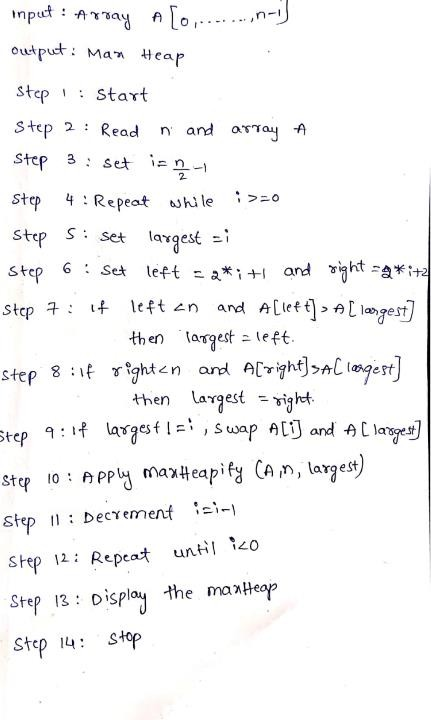 input : Array A[0,.......,n-1]
output : Max Heap
Step 1 : Start
Step 2 : Read n and array A
Step 3 : set i= n/2 -1
Step 4 : Repeat while i>=0
Step 5 : set largest =i
Step 6 : Set left = 2*i+1 and right =2*i+2
Step 7 : if left <n and A[left]>A[largest]
then largest = left.
Step 8 : if right<n and A[right]>A[largest]
then largest = right.
Step 9 : if largest != i , swap A[i] and A[largest]
Step 10 : Apply maxHeapify (A,n, largest)
Step 11 : Decrement i=i-1
Step 12 : Repeat until i<0
Step 13 : Display the maxHeap
Step 14 : Stop